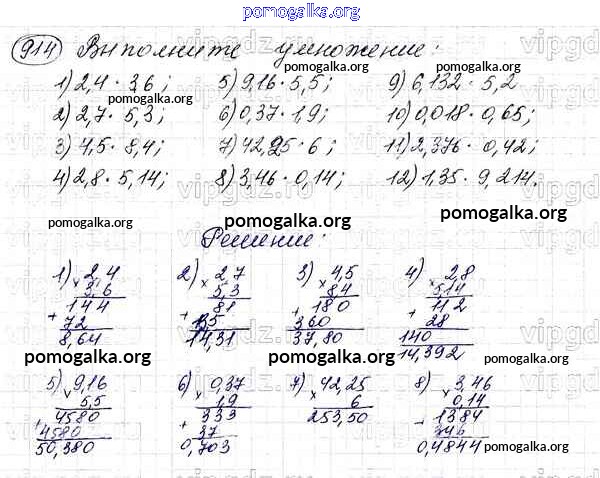 pomogalka.org
914 Выполните умножение:
1) 2,4 · 3,6; 5) 9,16 · 5,5; 9) 6,132 · 5,2
2) 2,7 · 5,3; 6) 0,37 · 1,9; 10) 0,018 · 0,65;
3) 4,5 · 8,4; 7) 42,25 · 6; 11) 2,376 · 0,42;
4) 2,8 · 5,14; 8) 3,46 · 0,14; 12) 1,35 · 9,214.
pomogalka.org
Решение:
1) 2,4 2) 2,7 3) 4,5 4) 2,8
× 3,6 × 5,3 × 8,4 × 5,14
144 81 180 112
+ 72 + 135 + 360 + 28
8,64 14,31 37,80 140
14,392
pomogalka.org
5) 9,16 6) 0,37 7) 42,25 8) 3,46
× 5,5 × 1,9 × 6 × 0,14
4580 333 253,50 1384
+ 4580 + 37 + 346
50,380 0,703 0,4844